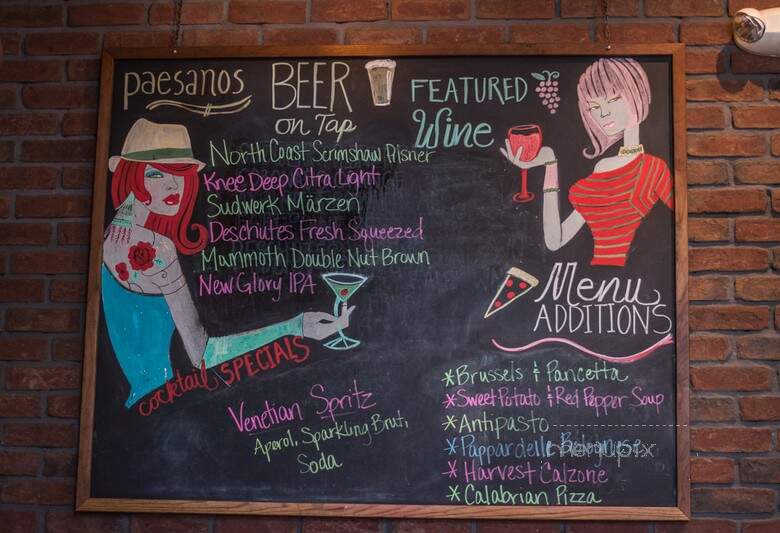 paesanos
BEER
on Tap
North Coast Scrimshaw Pilsner
Knee Deep Citra Light
Sudwerk Märzen
Deschutes Fresh Squeezed
Mammoth Double Nut Brown
New Glory IPA
cocktail SPECIALS
Venetian Spritz
Aperol, Sparkling Brut,
Soda
FEATURED
Wine
Menu
ADDITIONS
*Brussels & Pancetta
*Sweet Potato & Red Pepper Soup
*Antipasto
*Pappardelle Bolognese
*Harvest Calzone
*Calabrian Pizza
menupix